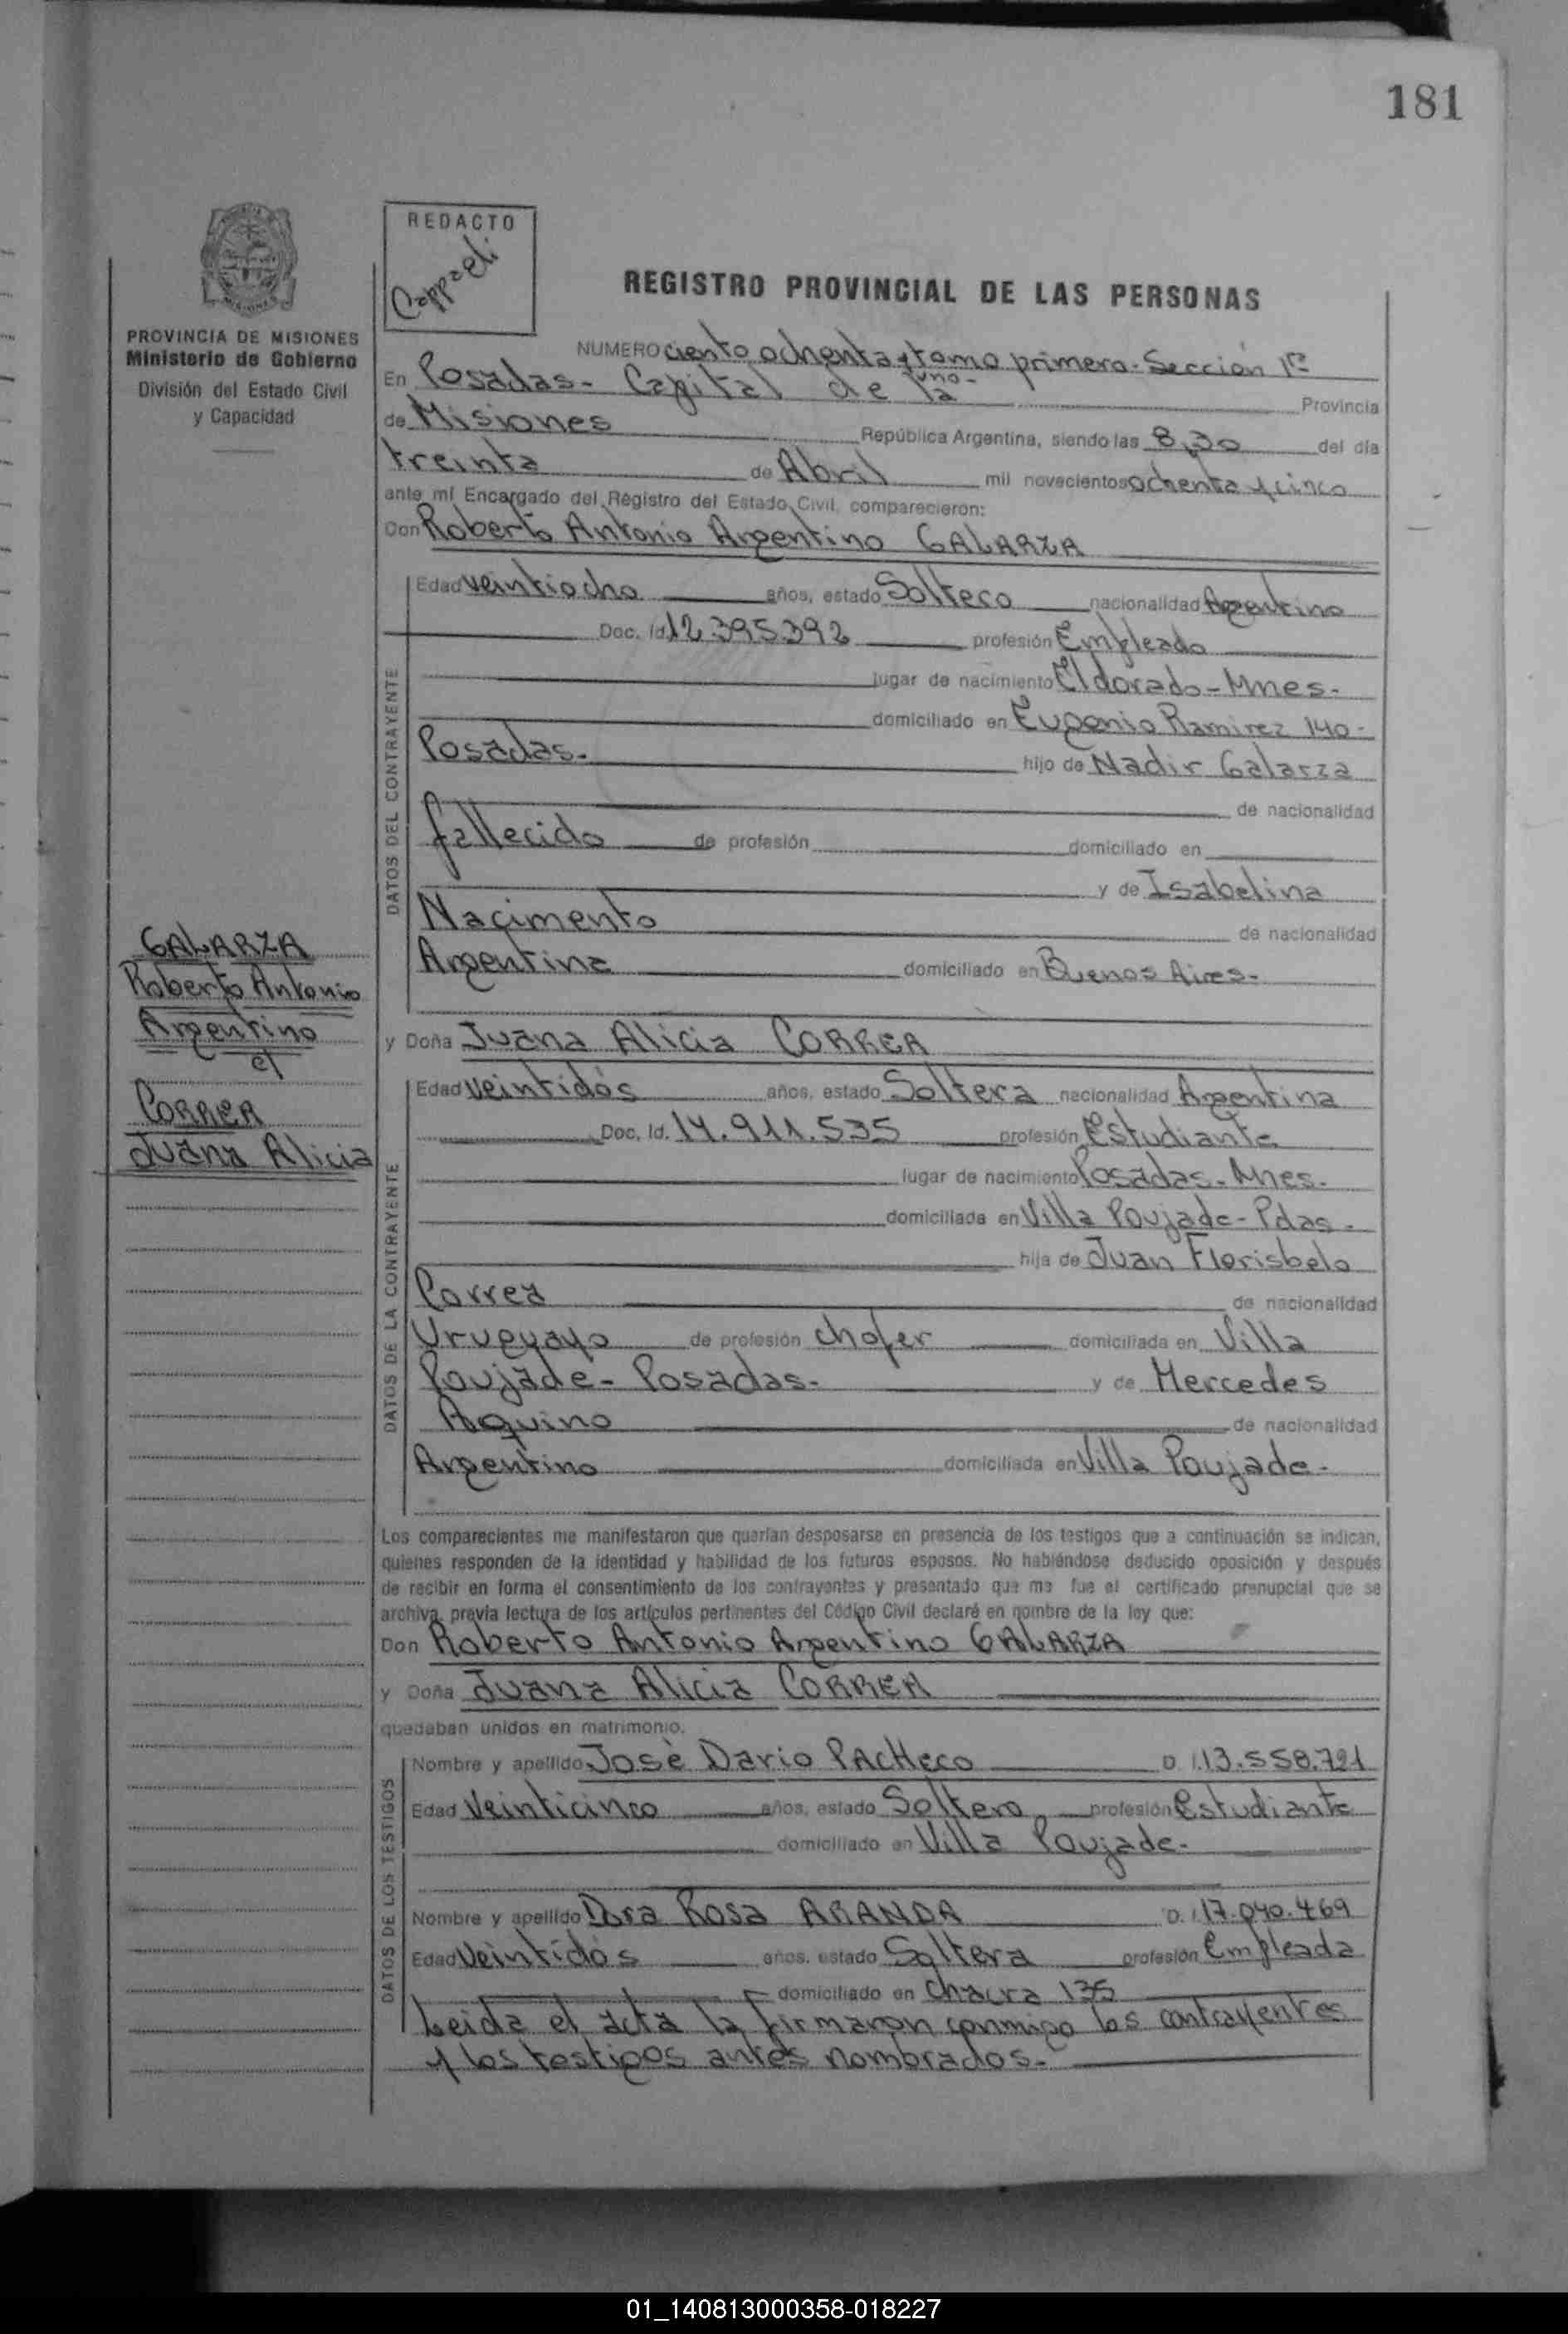 181
REDACTO
Cappaeli
REGISTRO PROVINCIAL DE LAS PERSONAS
PROVINCIA DE MISIONES
Ministerio de Gobierno
División del Estado Civil
y Capacidad
NUMERO ciento ochenta y tomo primero. Sección 1ª
uno-
En Posadas- Capital de la Provincia
de Misiones República Argentina, siendo las 8,30 del día
treinta de Abril mil novecientos ochenta y cinco
ante mí Encargado del Registro del Estado Civil, comparecieron:
Con Roberto Antonio Argentino GALARZA
Edad veintiocho años, estado Soltero nacionalidad Argentino
Doc. Id. 12.395.392 profesión Empleado
lugar de nacimiento Eldorado-Mnes.
domiciliado en Eugenio Ramirez 140-
Posadas. hijo de Nadir Galarza
de nacionalidad
fallecido de profesión domiciliado en
y de Isabelina
Nacimento de nacionalidad
Argentina domiciliado en Buenos Aires-
DATOS DEL CONTRAYENTE
GALARZA
Roberto Antonio
Argentino
c/
CORREA
Juana Alicia
y Doña Juana Alicia CORREA
Edad veintidós años, estado Soltera nacionalidad Argentina
Doc. Id. 14.911.535 profesión Estudiante
lugar de nacimiento Posadas-Mnes.
domiciliada en Villa Poujade-Pdas.
hija de Juan Florisbelo
Correa de nacionalidad
Uruguayo de profesión chofer domiciliada en Villa
Poujade- Posadas- y de Mercedes
Aquino de nacionalidad
Argentino domiciliada en Villa Poujade-
DATOS DE LA CONTRAYENTE
Los comparecientes me manifestaron que querían desposarse en presencia de los testigos que a continuación se indican,
quienes responden de la identidad y habilidad de los futuros esposos. No habiéndose deducido oposición y después
de recibir en forma el consentimiento de los contrayentes y presentado que me fue el certificado prenupcial que se
archiva, previa lectura de los artículos pertinentes del Código Civil declaré en nombre de la ley que:
Don Roberto Antonio Argentino GALARZA
y Doña Juana Alicia CORREA
quedaban unidos en matrimonio.
Nombre y apellido Josè Dario PACHECO D.I. 13.558.721
Edad Veinticinco años, estado Soltero, profesión Estudiante
domiciliado en Villa Poujade-
Nombre y apellido Dora Rosa ARANDA D.I. 17.040.469
Edad Veintidós años, estado Soltera profesión Empleada
domiciliado en 135
DATOS DE LOS TESTIGOS
Leida el acta la firmaron conmigo los contrayentes
y los testigos antes nombrados.-
01_140813000358-018227